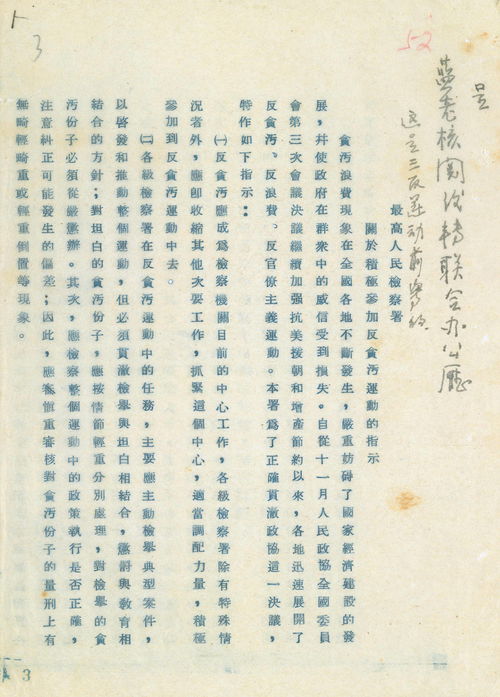 52
3
呈
蓝老核阅后转联合办公厅
这是三反运动前写的
最高人民檢察署
關於積極參加反貪汚運動的指示
貪汚浪費現象在全國各地不斷發生，嚴重訪碍了國家經濟建設的發
展，幷使政府在群衆中的威信受到損失。自從十一月人民政協全國委員
會第三次會議決議繼續加强抗美援朝和增產節約以來，各地迅速展開了
反貪汚、反浪費、反官僚主義運動。本署爲了正確貫澈政協這一決議，
特作如下指示：
㈠反貪汚應成爲檢察機關目前的中心工作，各級檢察署除有特殊情
况者外，應卽收縮其他次要工作，抓緊這個中心，適當調配力量，積極
參加到反貪汚運動中去。
㈡各級檢察署在反貪汚運動中的任務，主要應主動檢舉典型案件，
以啓發和推動整個運動，但必須貫澈檢舉與坦白相結合，懲罸與敎育相
結合的方針；對坦白的貪汚份子，應按情節輕重分別處理，對檢舉的貪
汚份子必須從嚴懲辦。其次，應檢察整個運動中的政策執行是否正確，
注意糾正可能發生的偏差；因此，應審愼重審核對貪汚份子的量刑上有
無畸輕畸重或輕重倒置等現象。
3